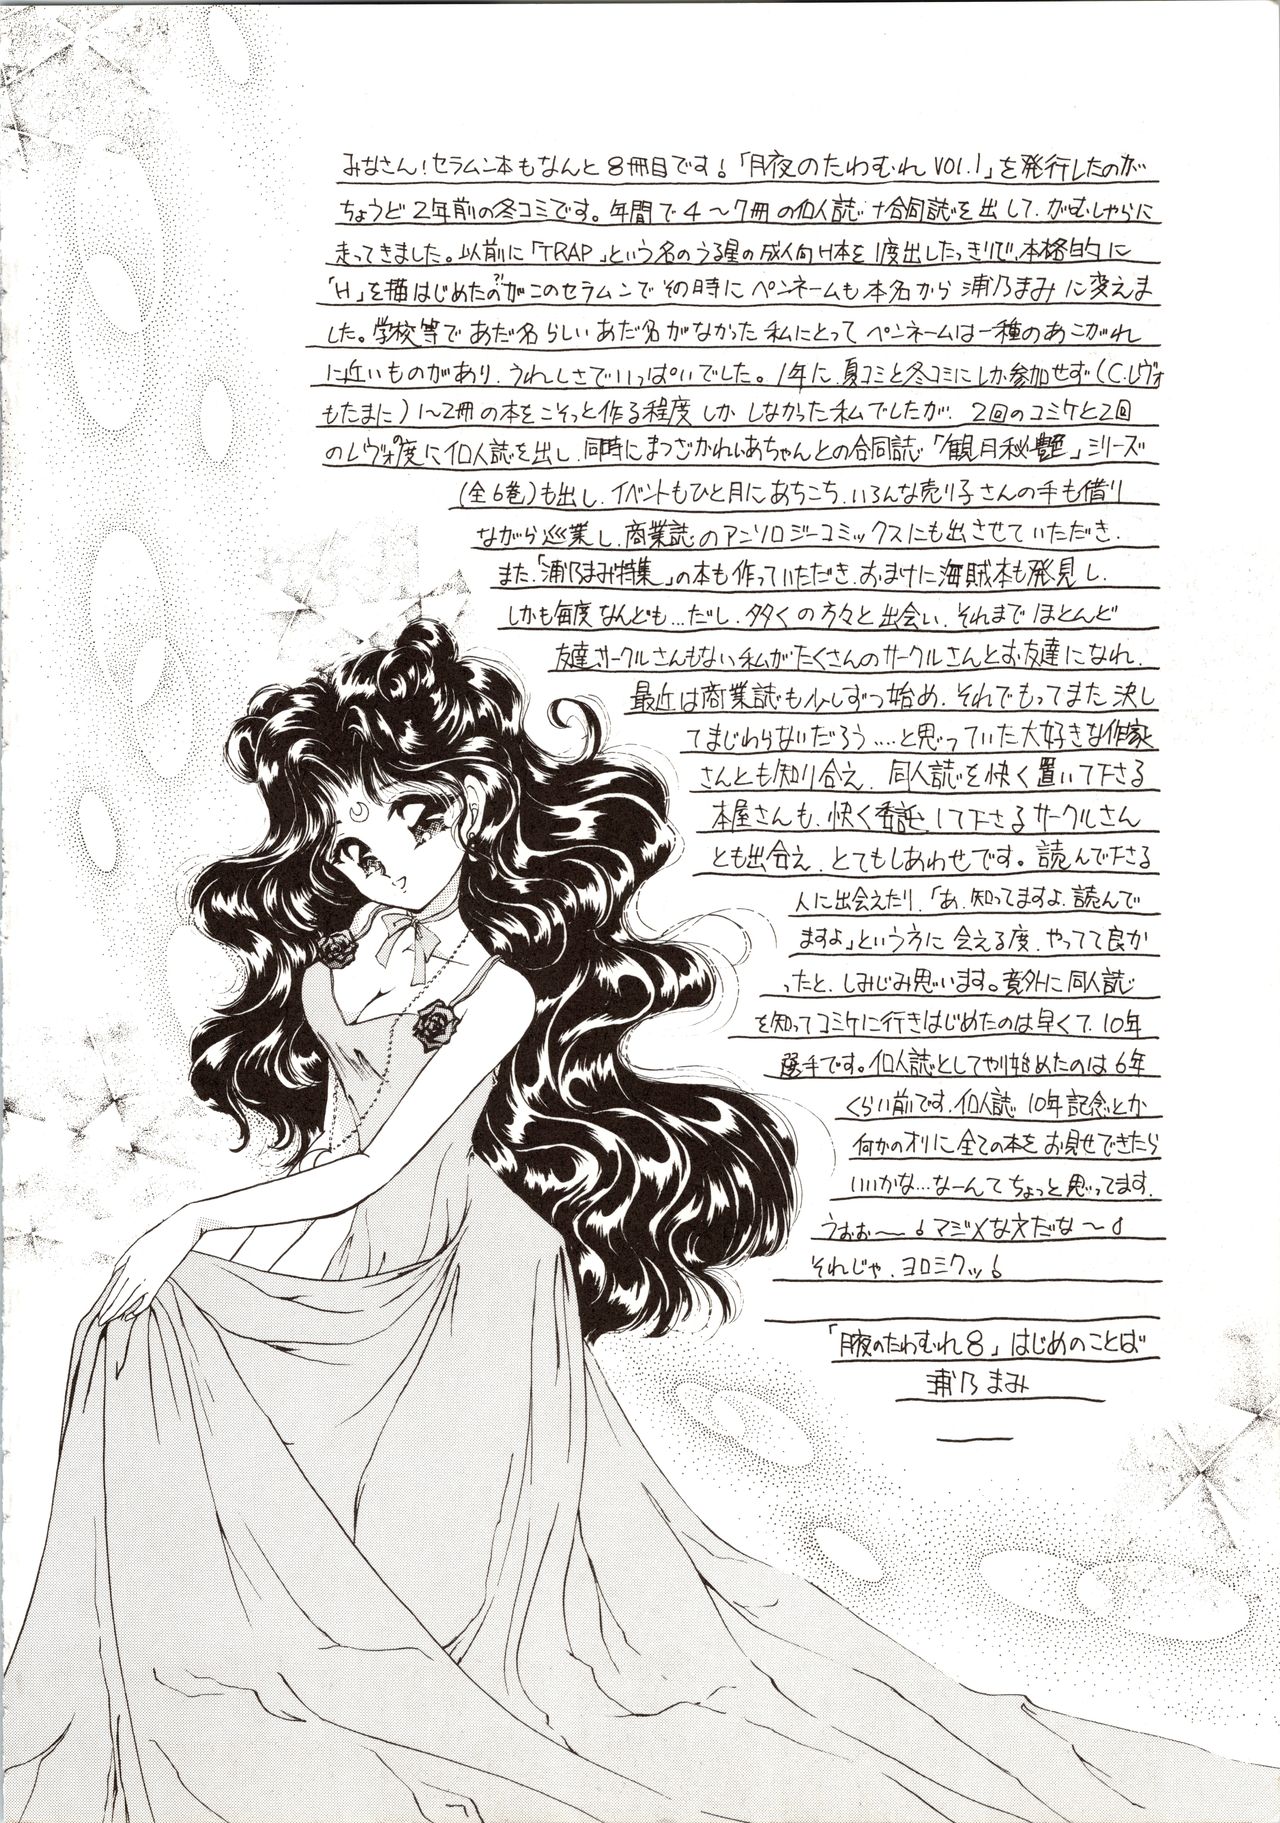 みなさん!セラムン本もなんと8冊目です!「月夜のたわむれVOL.1」を発行したのが
ちょうど2年前の冬コミです。年間で4〜7冊の個人誌+合同誌を出して、がむしゃらに
走ってきました。以前に「TRAP」という名のうる星の成人向H本を1度出したっきりで、本格的に
「H」を描はじめたのがこのセラムンでその時にペンネームも本名から浦乃まみに変えま
した。学校等であだ名らしいあだ名がなかった私にとってペンネームは一種のあこがれ
に近いものがあり、うれしさでいっぱいでした。1年に、夏コミと冬コミにしか参加せず(C.レヴォ
もたまに)1〜2冊の本をこそっと作る程度しかしなかった私でしたが、2回のコミケと2回
のレヴォの度に個人誌を出し、同時にまつざかれいあちゃんとの合同誌「観月秘艶」シリーズ
(全6巻)も出し、イベントもひと月にあちこち、いろんな売り子さんの手も借り
ながら巡業し、商業誌のアンソロジーコミックスにも出させていただき、
また、「浦乃まみ特集」の本も作っていただき、おまけに海賊本も発見し、
しかも毎度なんども…だし、多くの方々と出会い、それまでほとんど
友達サークルさんもない私がたくさんのサークルさんとお友達になれ、
最近は商業誌も少しずつ始め、それでもってまた決し
てまじわらないだろう……と思っていた大好きな作家
さんとも知り合え、同人誌を快く置いて下さる
本屋さんも、快く委託して下さるサークルさん
とも出会え、とてもしあわせです。読んで下さる
人に出会えたり、「あ、知ってますよ、読んで
ますよ」という方に会える度、やってて良か
ったと、しみじみ思います。意外に同人誌
を知ってコミケに行きはじめたのは早くて、10年
選手です。個人誌としてやり始めたのは6年
くらい前です。個人誌10年記念とか
何かのオリに全ての本をお見せできたら
いいかな…なーんてちょっと思ってます。
うぉぉ〜!マジメな文だな〜!
それじゃ、ヨロミクッ!
「月夜のたわむれ8」はじめのことば
浦乃まみ